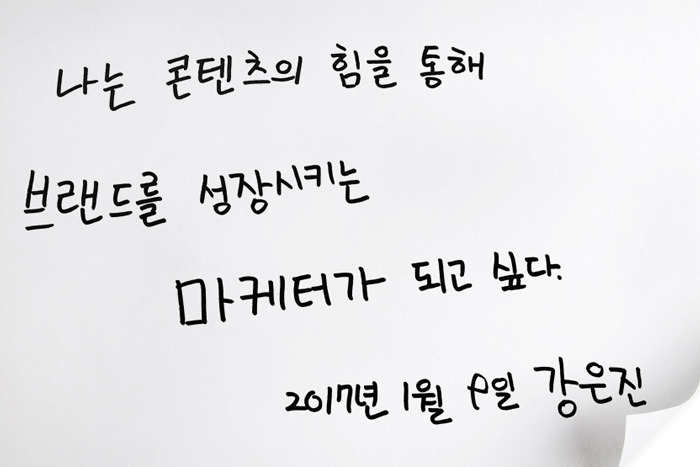 나는 콘텐츠의 힘을 통해
브랜드를 성장시키는
마케터가 되고 싶다.
2017년 1월 9일 강은진